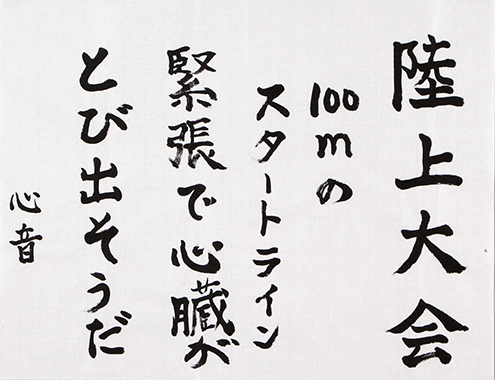 陸上大会
100mの
スタートライン
緊張で心臓が
とび出そうだ
心音